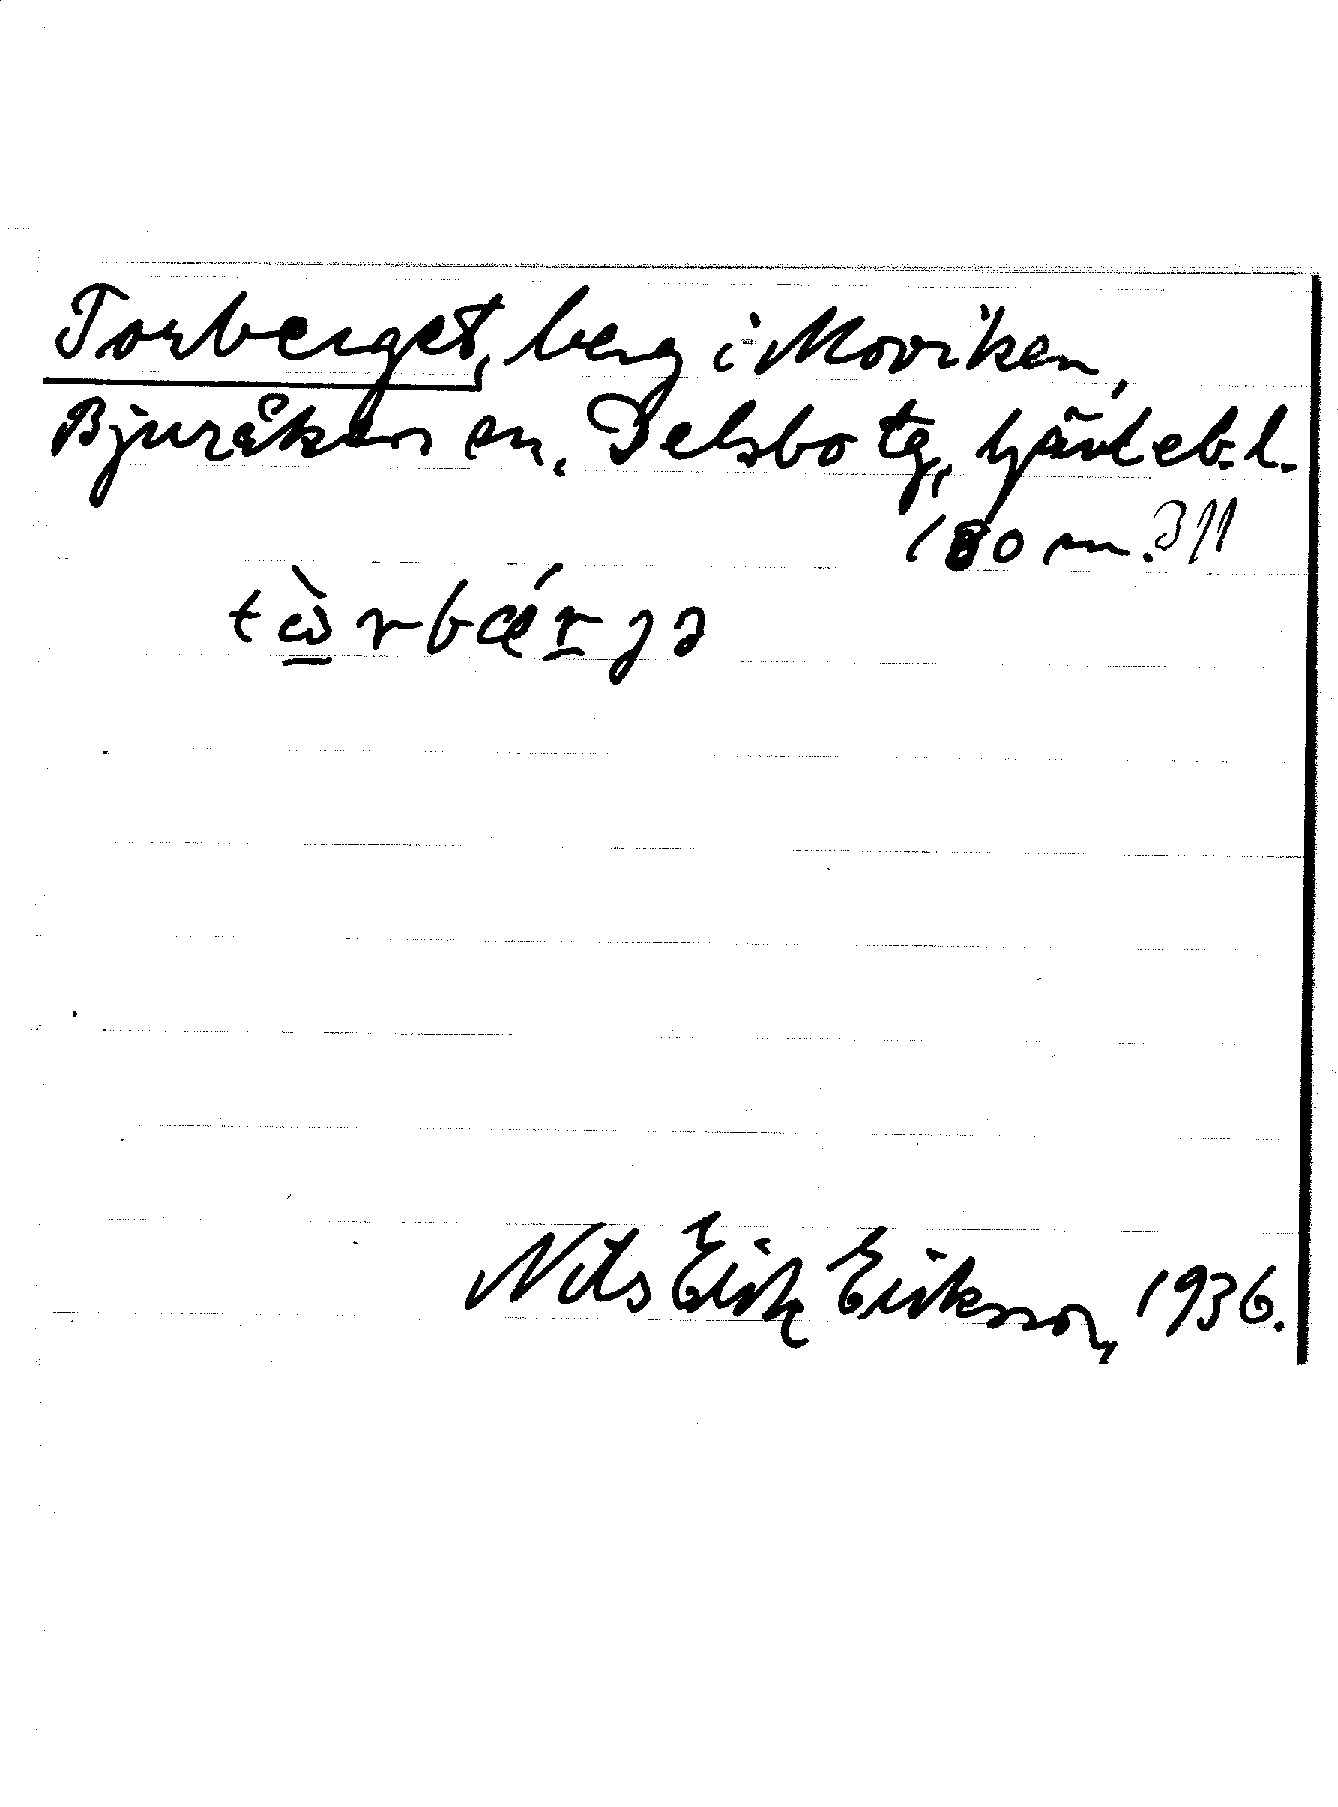 Torberget, berg i Moviken,
Bjuråkers sn. Delsbo tg, Gävleb. l.
180 m.
tὼ̲rbǽr̲gə
Nils Erik Eriksson, 1936.